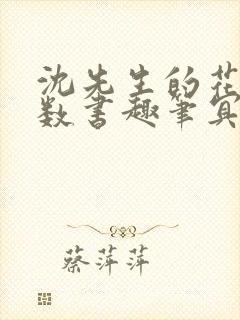 沈先生的花
数书趣笔真
蔡萍萍